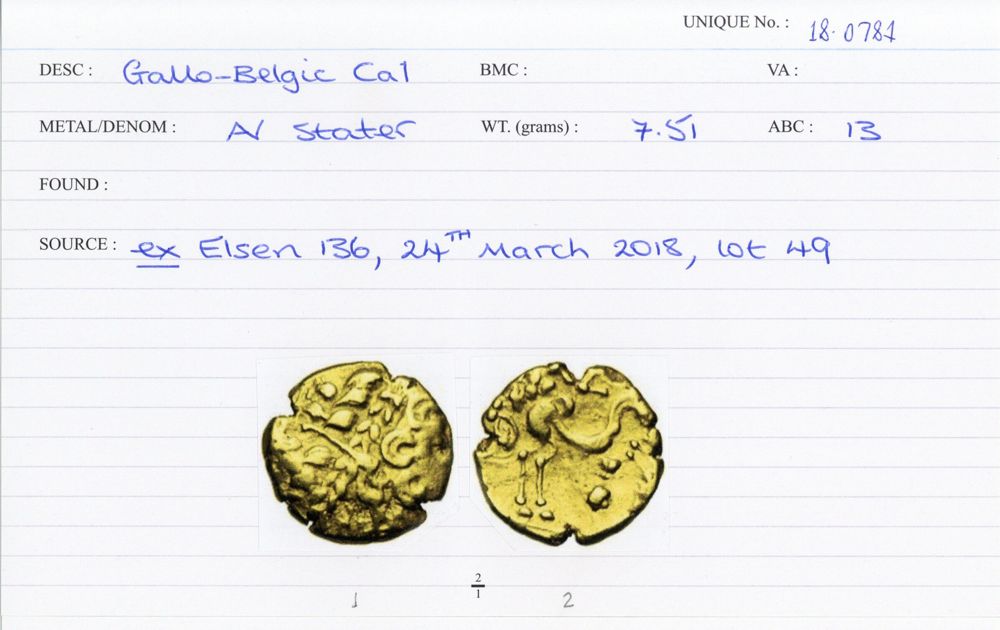 UNIQUE No. : 18.0781
DESC : Gallo-Belgic Ca1 BMC : VA :
METAL/DENOM : A/ Stater WT. (grams) : 7.51 ABC : 13
FOUND :
SOURCE : ex Elsen 136, 24TH March 2018, lot 49
2
1
1 2